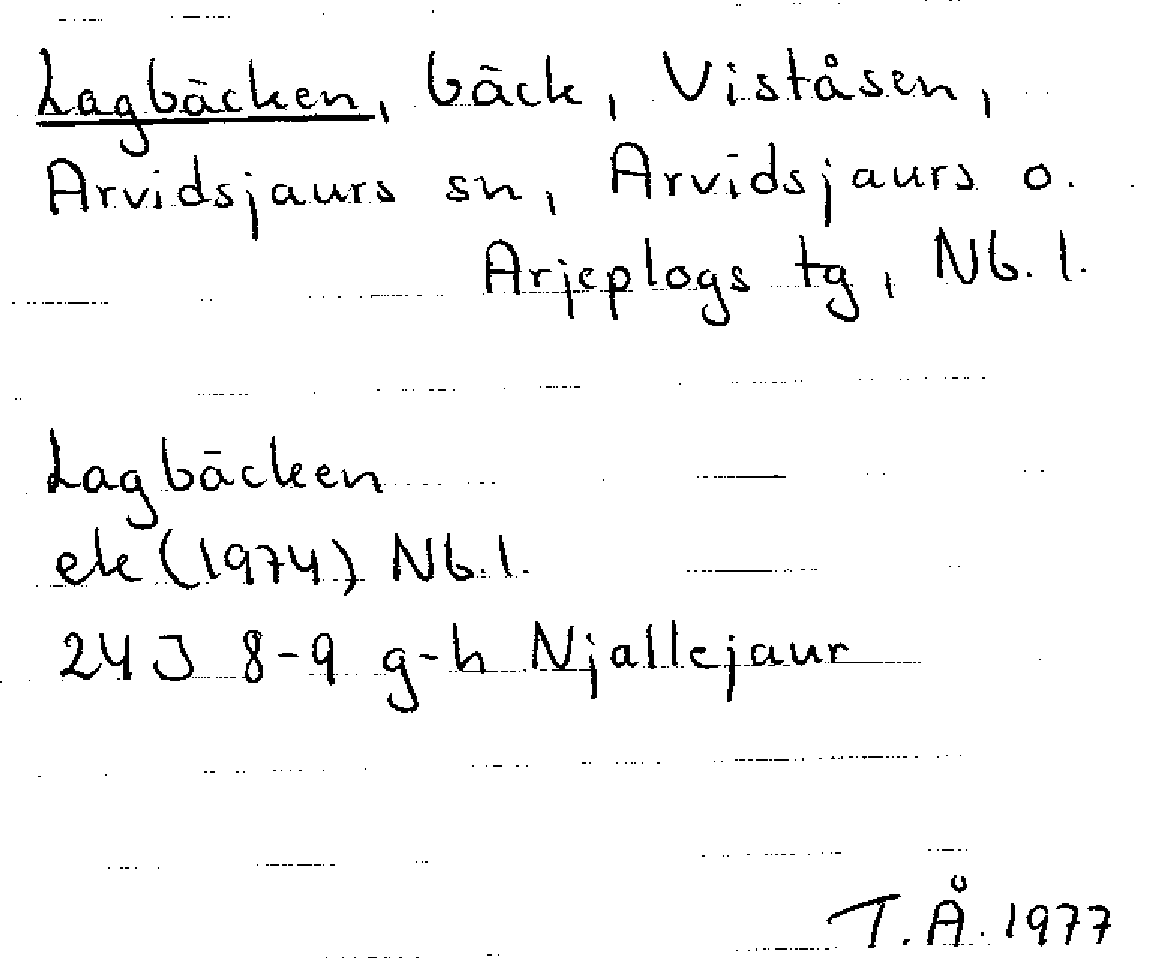 Lagbäcken, bäck, Viståsen,
Arvidsjaurs sn, Arvidsjaurs o.
Arjeplogs tg, Nb. l.
Lagbäcken
ek (1974) Nb. l.
24J 8-9 g-h Njallejaur
T.Å. 1977